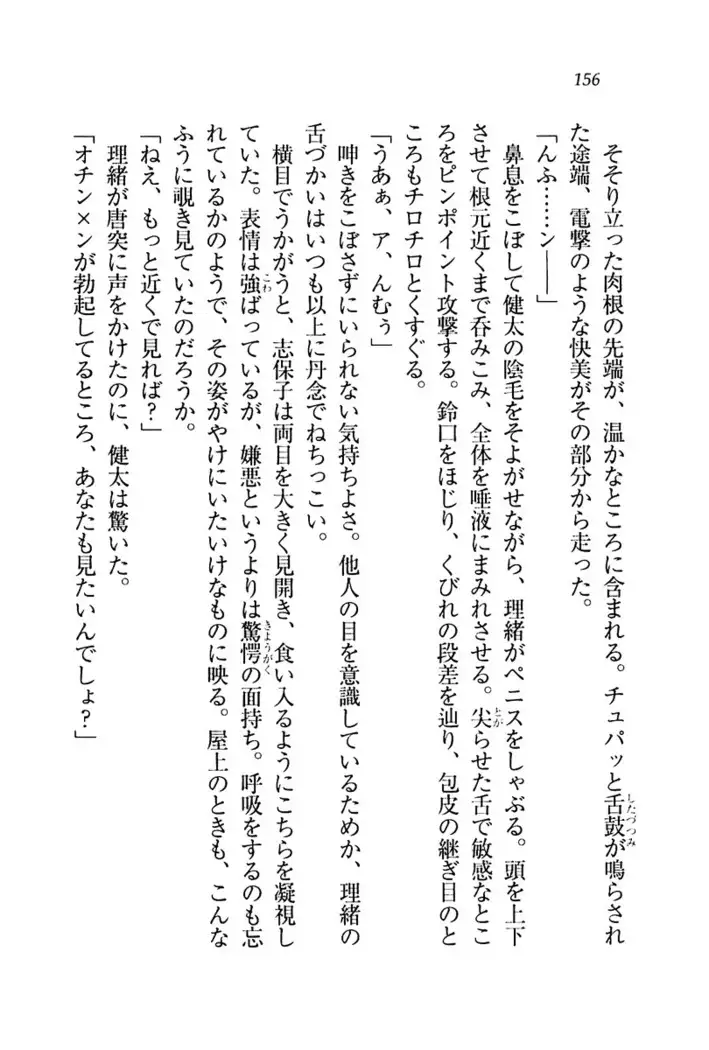 156
そそり立った肉根の先端が、温かなところに含まれる。チュパッと舌鼓が鳴らされ
た途端、電撃のような快美がその部分から走った。
「んふ……ン――」
鼻息をこぼして健太の陰毛をそよがせながら、理緒がペニスをしゃぶる。頭を上下
させて根元近くまで呑みこみ、全体を唾液にまみれさせる。尖らせた舌で敏感なとこ
ろをピンポイント攻撃する。鈴口をほじり、くびれの段差を辿り、包皮の継ぎ目のと
ころもチロチロとくすぐる。
「うあぁ、ア、んむぅ」
呻きをこぼさずにいられない気持ちよさ。他人の目を意識しているためか、理緒の
舌づかいはいつも以上に丹念でねちっこい。
横目でうかがうと、志保子は両目を大きく見開き、食い入るようにこちらを凝視し
ていた。表情は強ばっているが、嫌悪というよりは驚愕の面持ち。呼吸をするのも忘
れているかのようで、その姿がやけにいたいけなものに映る。屋上のときも、こんな
ふうに覗き見ていたのだろうか。
「ねえ、もっと近くで見れば？」
理緒が唐突に声をかけたのに、健太は驚いた。
「オチン×ンが勃起してるところ、あなたも見たいんでしょ？」